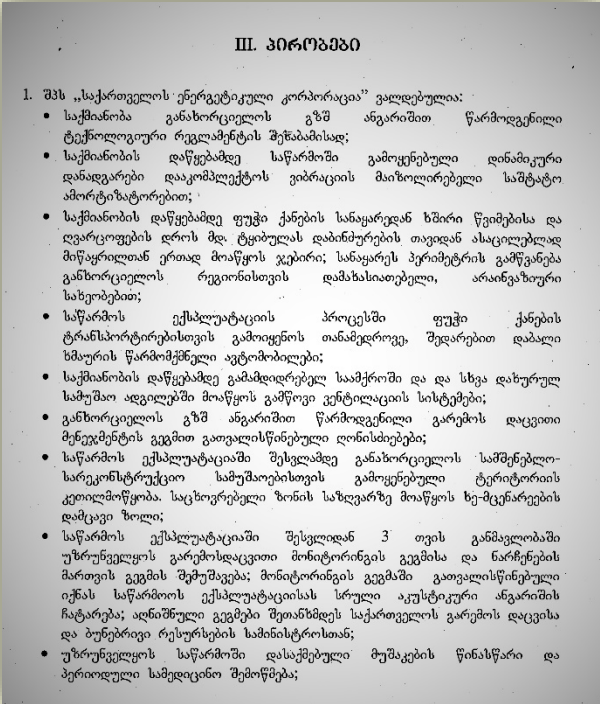 III. პირობები
1. შპს „საქართველოს ენერგეტიკული კორპორაცია" ვალდებულია:
• საქმიანობა განახორციელოს გზშ ანგარიშით წარმოდგენილი
ტექნოლოგიური რეგლამენტის შესაბამისად;
• საქმიანობის დაწყებამდე საწარმოში გამოყენებული დინამიკური
დანადგარები დააკომპლექტოს ვიბრაციის მაიზოლირებელი საშტატო
ამორტიზატორებით;
• საქმიანობის დაწყებამდე ფუჭი ქანების სანაყარედან ხშირი წვიმებისა და
ღვარცოფების დროს მდ. ტყიბულას დაბინძურების თავიდან ასაცილებლად
მიწაყრილთან ერთად მოაწყოს ჯებირი; სანაყარეს პერიმეტრის გამწვანება
განხორციელოს რეგიონისთვის დამახასიათებელი, არაინვაზიური
სახეობებით;
• საწარმოს ექსპლუატაციის პროცესში ფუჭი ქანების
ტრანსპორტირებისთვის გამოიყენოს თანამედროვე, შედარებით დაბალი
ხმაურის წარმომქმნელი ავტომობილები;
• საქმიანობის დაწყებამდე გამამდიდრებელ საამქროში და და სხვა დახურულ
სამუშაო ადგილებში მოაწყოს გამწოვი ვენტილაციის სისტემები;
• განხორციელოს გზშ ანგარიშით წარმოდგენილი გარემოს დაცვითი
მენეჯმენტის გეგმით გათვალისწინებული ღონისძიებები;
• საწარმოს ექსპლუატაციაში შესვლამდე განახორციელოს სამშენებლო-
სარეკონსტრუქციო სამუშაოებისთვის გამოყენებული ტერიტორიის
კეთილმოწყობა. საცხოვრებელი ზონის საზღვარზე მოაწყოს ხე-მცენარეების
დამცავი ზოლი;
• საწარმოს ექსპლუატაციაში შესვლიდან 3 თვის განმავლობაში
უზრუნველყოს გარემოსდაცვითი მონიტორინგის გეგმისა და ნარჩენების
მართვის გეგმის შემუშავება; მონიტორინგის გეგმაში გათვალისწინებული
იქნას საწარმოოს ექსპლუატაციისას სრული აკუსტიკური ანგარიშის
ჩატარება; აღნიშნული გეგმები შეთანხმდეს საქართველოს გარემოს დაცვისა
და ბუნებრივი რესურსების სამინისტროსთან;
• უზრუნველყოს საწარმოში დასაქმებული მუშაკების წინასწარი და
პერიოდული სამედიცინო შემოწმება;